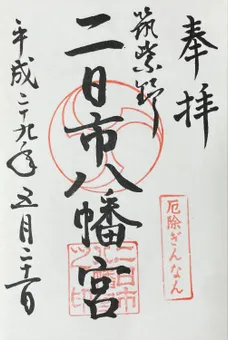 奉拝
筑紫野
二日市八幡宮
平成二十九年五月二十一日
厄除ぎんなん